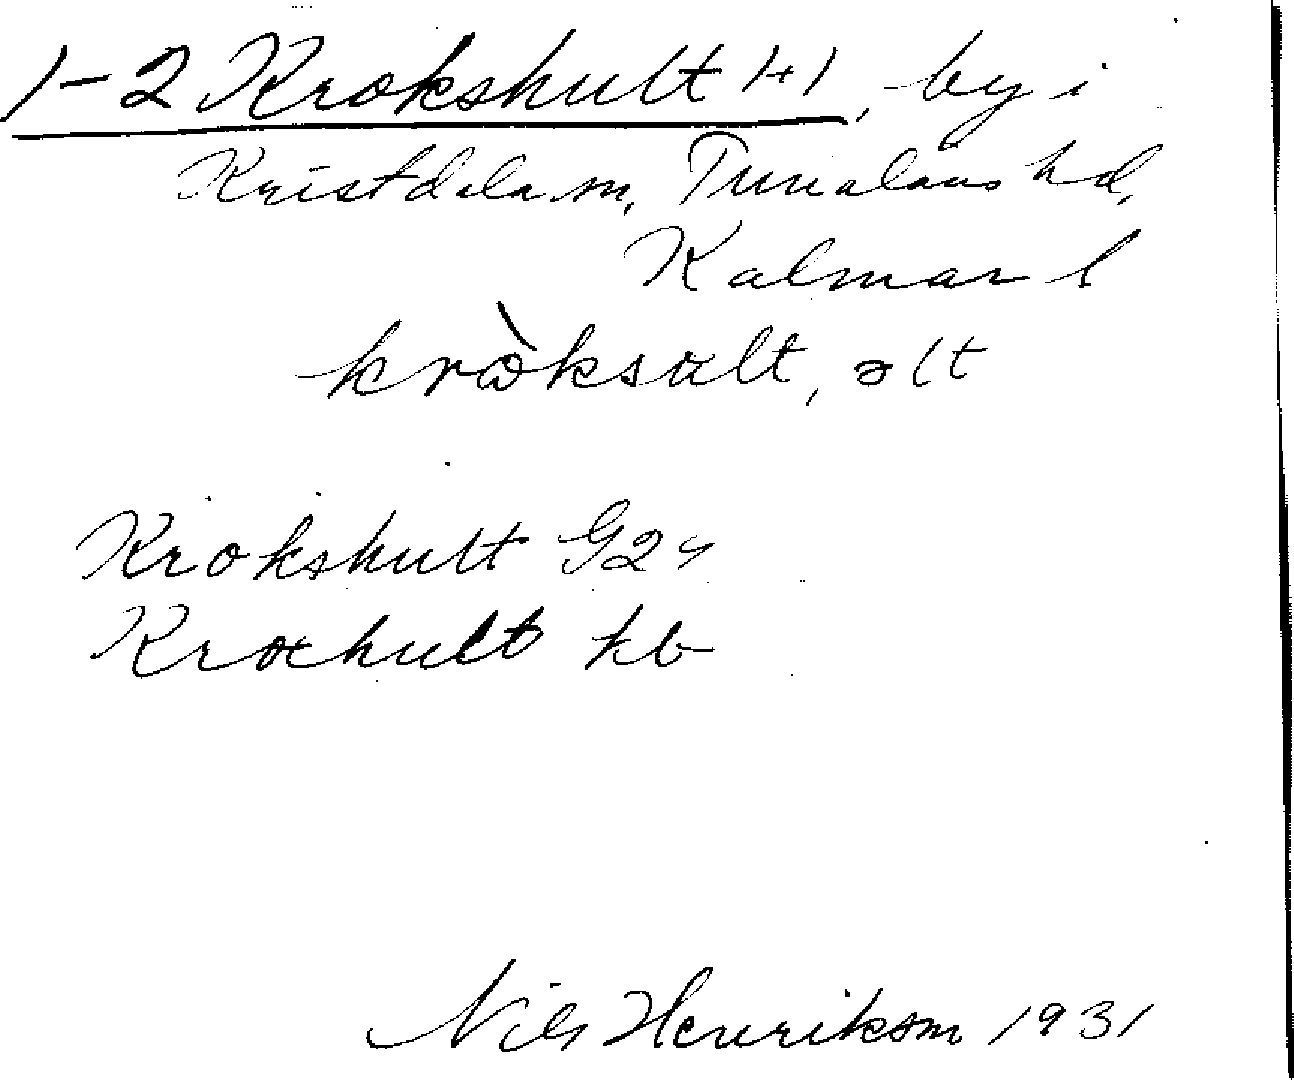 1-2 Krokshult 1+1, by i
Kristdala sn, Tunaläns hd,
Kalmar l
kròksult, əlt
Krokshult G2γ
Krochult kb
Nils Henrikson 1931